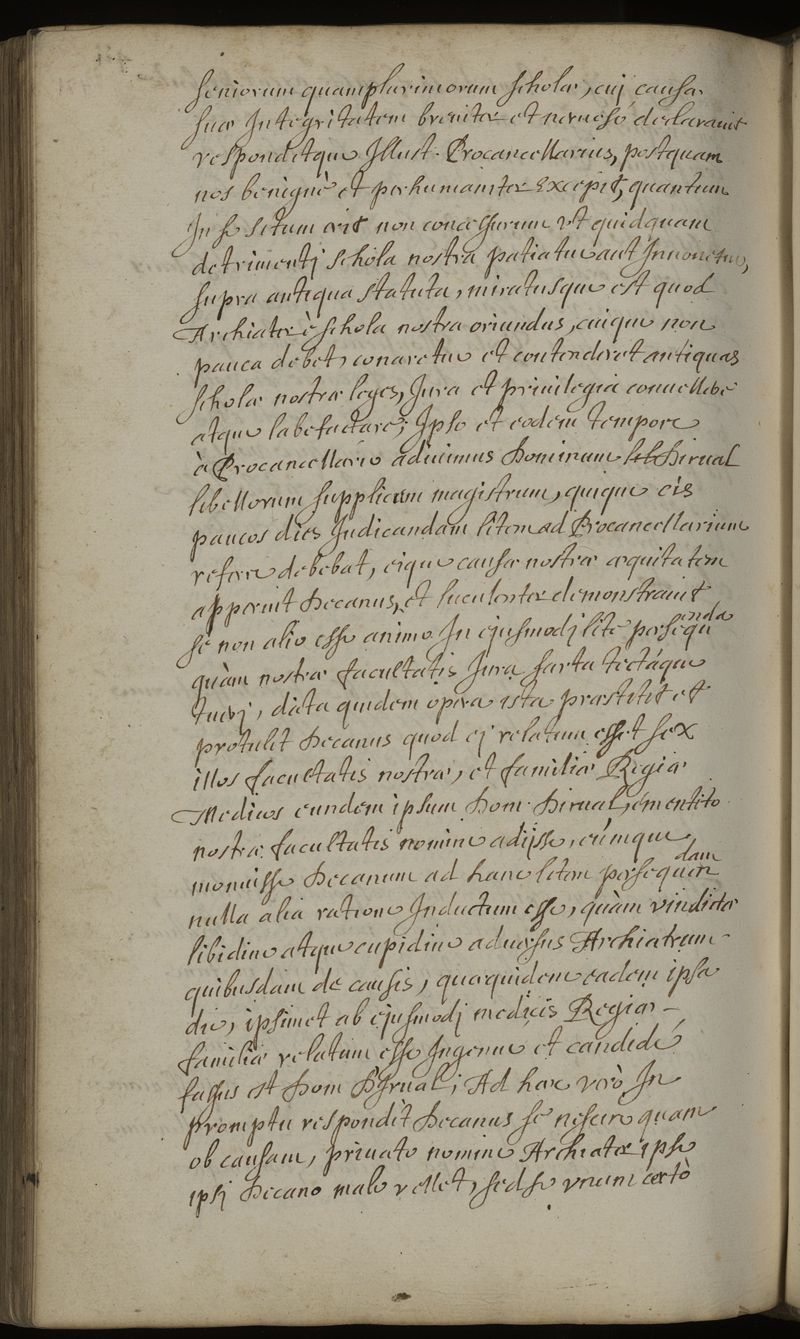 seniorum quamplurimorum scholæ, cuj causæ
suæ Integritatem breuiter et neruosé declarauit
responditque Illust. Procancellarius, postquam
nos benignè et perhumaniter excepit, quantum
In se situm erit non concessurum vt quidquam
detrimentj schola nostra patiatur aut Innouetur,
supra antiqua statuta, miratusque est quod
Archiater è schola nostra oriundus, cuique non
pauca debet, conaretur et contenderet antiquas
scholæ nostræ leges, Jura et priuilegia conuellere
atque labefactare; Ipso et eodem tempore
à Procancellario adiuimus Dominum hirual
libellorum supplicum magistrum, quique eis
paucos dies Judicandam litem ad Procancellarium
referre debebat, eique causæ nostræ æquitatem
apperuit Decanus, et luculenter demonstrauit
se non alio esse animo In ejusmodj lite persequenda
quàm nostræ facultatis Jura sarta tectáque
tuerj, dicta quidem opera ista præstitit et
protulit Decanus quod ej relatum esset sex
illos facultatis nostræ, et familiæ Regiæ
Medicos eundem ipsum Dom. Hirual, émentito
nostræ facultatis nomine adijsse, eúmque
monuisse Decanum ad hanc litem persequendam
nulla alia ratione Inductum esse, quàm vindictæ
libidine atque cupidine aduersus Archiatrum
quibusdam de causis, quæquidem eadem ipsa
die, ipsimet ab ejusmodj medicis Regiæ
familiæ relatum esse Ingenue et candidé
fassus est Dom Hirual; Ad hæc verò In
promptu respondit Decanus se nescire quam
ob causam, priuato nomine Archiater ipse
ipsj Decano male vellet, sed se vnum certò